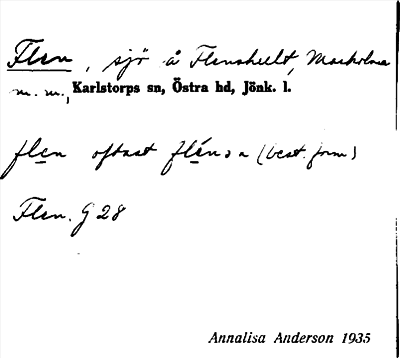 Flen, sjö å Flenshult, Mackolna
m. m., Karlstorps sn, Östra hd, Jönk. l.
flen oftast flénɔn (best. form)
Flen. G 28
Annalisa Anderson 1935